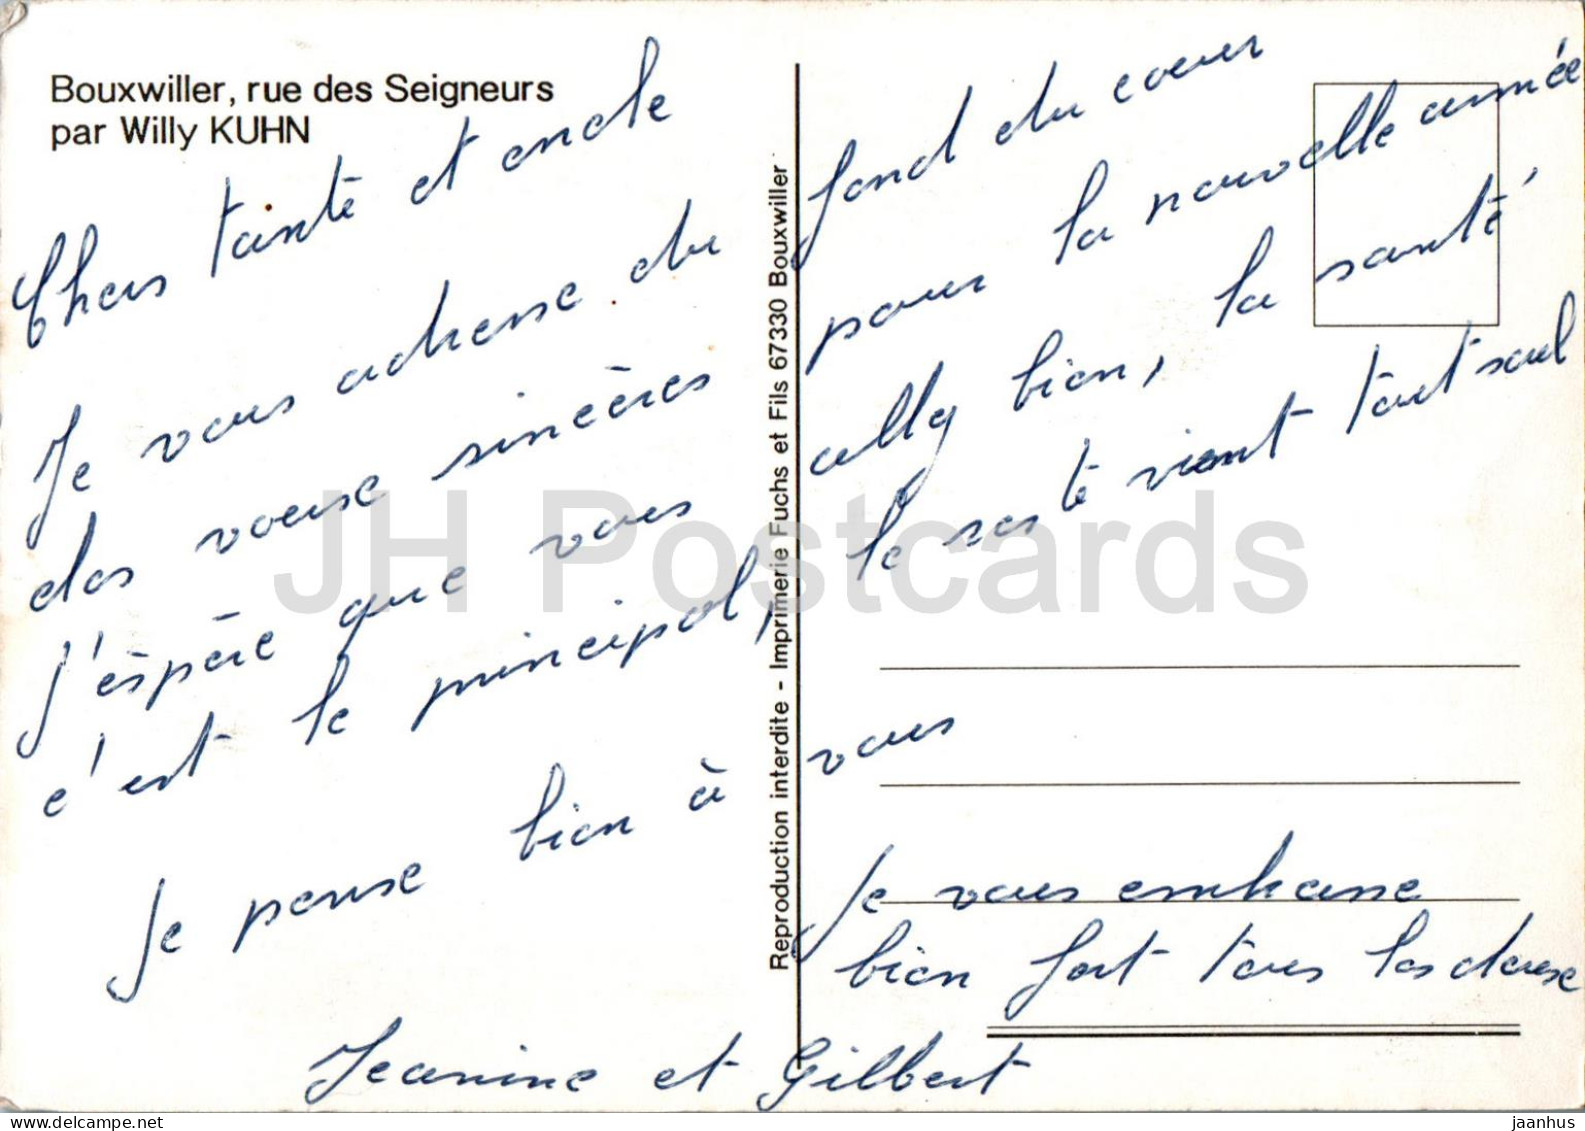 Bouxwiller, rue des Seigneurs
par Willy KUHN
Chers tante et oncle
Je vous adresse du fond du coeur
des voeuse sincères pour la nouvelle année
J'éspère que vous ally bien, la santé,
c'est le principal, le reste vient tout seul
Je pense bien à vous
Je vous embrasse
bien fort tous les deuse
Jeanine et Gilbert
Reproduction interdite - Imprimerie Fuchs et Fils 67330 Bouxwiller
JH Postcards
delcampe.net
jaanhus